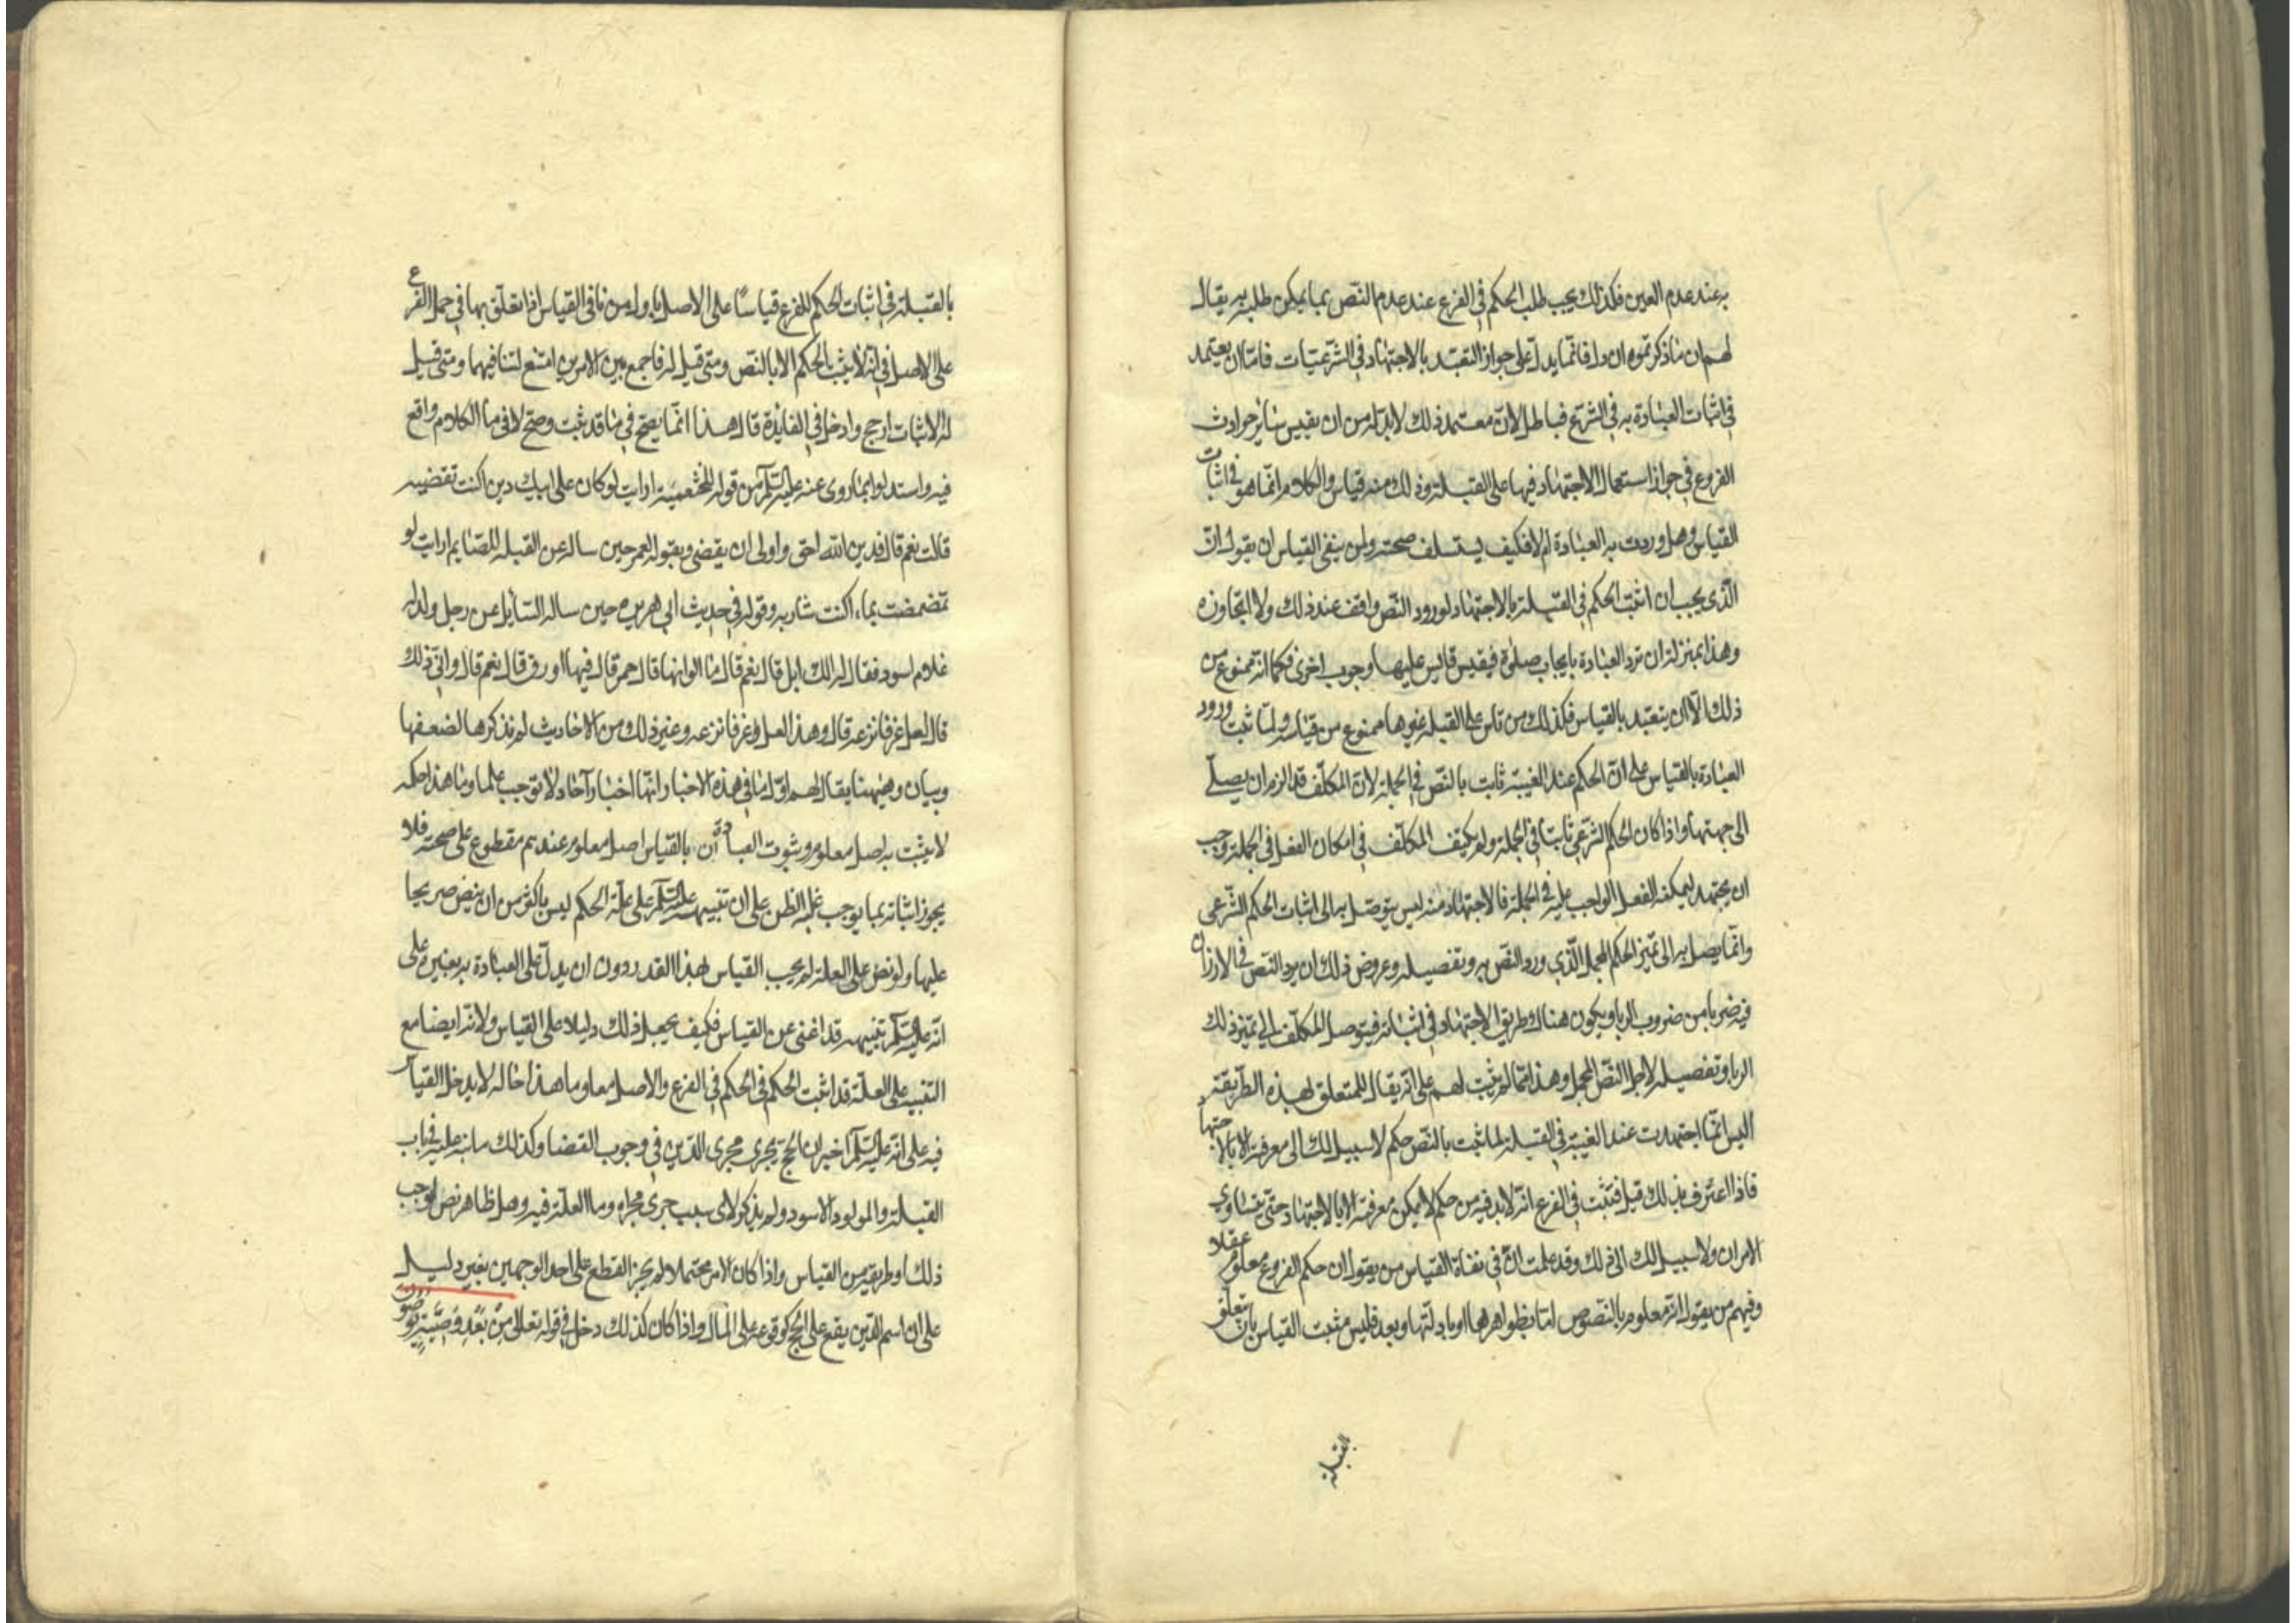 به عند عدم العين فكذلك يجب طلب الحكم في الفرع عند عدم النص بما يمكن طلبه به يقال
لهم ان ما ذكرتموه ان دل فانما يدل على جواز التعبد بالاجتهاد في الشرعيات فاما ان يعتمد
في اثبات العبادة به في الشرع فباطل لان معتمد ذلك لا بد له من ان يقيس سائر حوادث
الفروع في جواز استعمال الاجتهاد فيها على القبلة وذلك منه قياس والكلام انما هو في اثبات
القياس وهل وردت به العبادة ام لا فكيف يستسلف صحته ولمن ينفي القياس ان يقول ان
الذي يجب ان اثبت الحكم في القبلة بالاجتهاد لورود النص واقف عند ذلك ولا اتجاوزه
وهذا بمنزلة ان ترد العبادة بايجاب صلوة فيقيس قايس عليها وجوب اخرى فكما انه ممنوع من
ذلك الا ان يتعبد بالقياس فكذلك من قاس على القبلة غيرها ممنوع من قياسه ولما ثبت ورود
العبادة بالقياس على ان الحكم عند الغيبة ثابت بالنص في الجملة لان المكلف قد الزم ان يصلي
الى جهتها واذا كان الحكم الشرعي ثابتا في الجملة ولم يكيف المكلف في امكان الفعل في الجملة وجب
ان يجتهد ليمكنه الفعل الواجب عليه في الجملة فالاجتهاد منه ليس يتوصل به الى اثبات الحكم الشرعي
وانما يصل به الى تميز الحكم المجمل الذي ورد النص به وتفصيله وعروض ذلك ان يرد النص في الارزان
فيه ضربا من ضروب الربا ويكون هناك طريق الاجتهاد في اثباته فيتوصل المكلف الى تميز ذلك
الربا وتفصيله لاجل النص المجمل وهذا مما لم يثبت لهم على انه يقال للمتعلق لهذه الطريقة
اليس انما اجتهدت عند الغيبة في القبلة لما ثبت بالنص حكم لا سبيل لك الى معرفته الا بالاجتهاد
فاذا اعترف بذلك قيل فتثبت في الفرع انه لا بد فيه من حكم لا يمكن معرفته الا بالاجتهاد حتى يتساوي
الامران ولا سبيل لك الى ذلك وقد علمت ان في نفاة القياس من يقول ان حكم الفروع معلوم عقلا
وفيهم من يقول انه معلوم بالنصوص اما بظواهرها او بادلتها وبعد فليس مثبت القياس بان يتعلق
القبلة
بالقبلة في اثبات الحكم للفرع قياسا على الاصل باولى من نافي القياس اذا تعلق بها في حمل الفرع
على الاصل في انه لا يثبت الحكم الا بالنص ومتى قيل له فاجمع بين الامرين امتنع لتنافيهما ومتى قيل
له الاثبات ارجح وادخل في الفايدة قال هذا انما يصح في ما قد ثبت وصح لا في ما الكلام واقع
فيه واستدلوا بما روى عنه عليه السلم من قوله للخثعمية ارايت لو كان على ابيك دين اكنت تقضينه
قالت نعم قال فدين الله احق واولى ان يقضى وبقوله لعمر حين ساله عن القبله للصايم ارايت لو
تمضمضت بماء اكنت شاربه وقوله في حديث ابي هريره حين ساله السائل عن رجل ولد له
غلام اسود فقال له الك ابل قال نعم قال ما الوانها قال حمر قال فيها اورق قال نعم قال وانى ذلك
قال لعل عرقا نزعه قال وهذا لعل عرقا نزعه وغير ذلك من الاحاديث لم نذكرها لضعفها
وبيان وهنها يقال لهم اول ما في هذه الاخبار انها اخبار آحاد لا توجب علما وما هذا حكمه
لا يثبت به اصل معلوم وثبوت العبادة بالقياس اصل معلوم عندهم مقطوع على صحته فلا
يجوز اثباته بما يوجب غلبة الظن على ان تنبيهه عليه السلم على علة الحكم ليس باكثر من ان ينص صريحا
عليها ولو نص على العلة لم يجب القياس لهذا القدر دون ان يدل على العبادة به بغيره على
انه عليه السلم تنبيهه قد اغنى عن القياس فكيف يجعل ذلك دليلا على القياس ولانه ايضا مع
التنبيه على العلة قد اثبت الحكم في الحكم في الفرع والاصل معا وما هذا حاله لا يدخل القياس
فيه على انه عليه السلم اخبر ان الحج يجرى مجرى الدين في وجوب القضا وكذلك ما نبه عليه في باب
القبلة والمولود الاسود ولم يذكر لاى سبب جرى مجراه وما العلة فيه وهل ظاهر نص اوجب
ذلك او طريقه من القياس واذا كان الامر محتملا لم يجز القطع على احد الوجهين بغير دليل
على ان اسم الدين يقع على الحج كوقوعه على المال واذا كان كذلك دخل في قوله تعالى من بعد وصية توصون